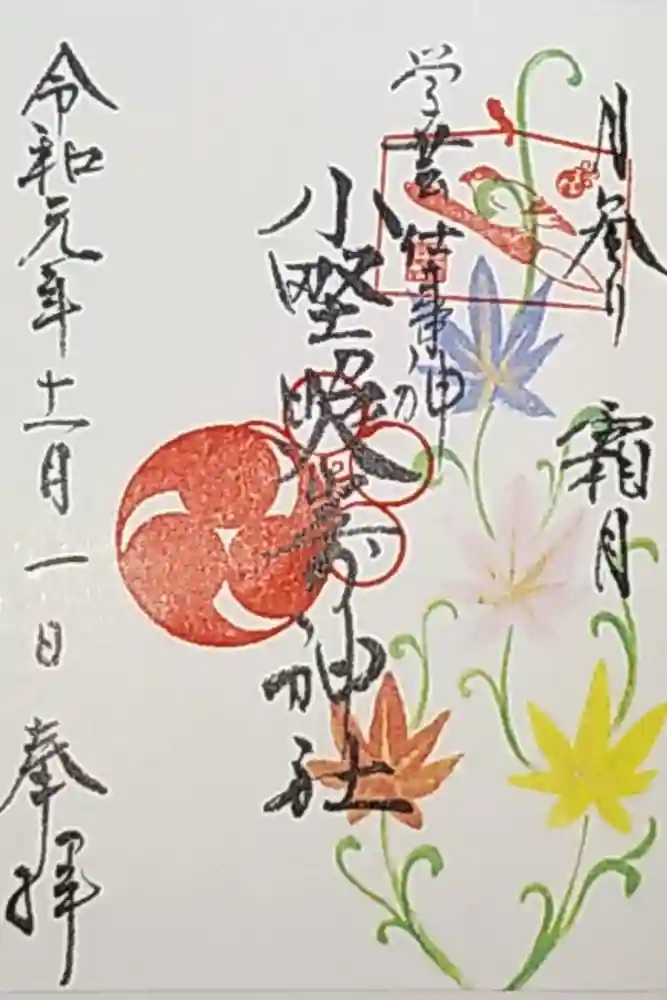 月参り 霜月
学芸 仕事神
小野照崎神社
令和元年十一月一日 奉拝